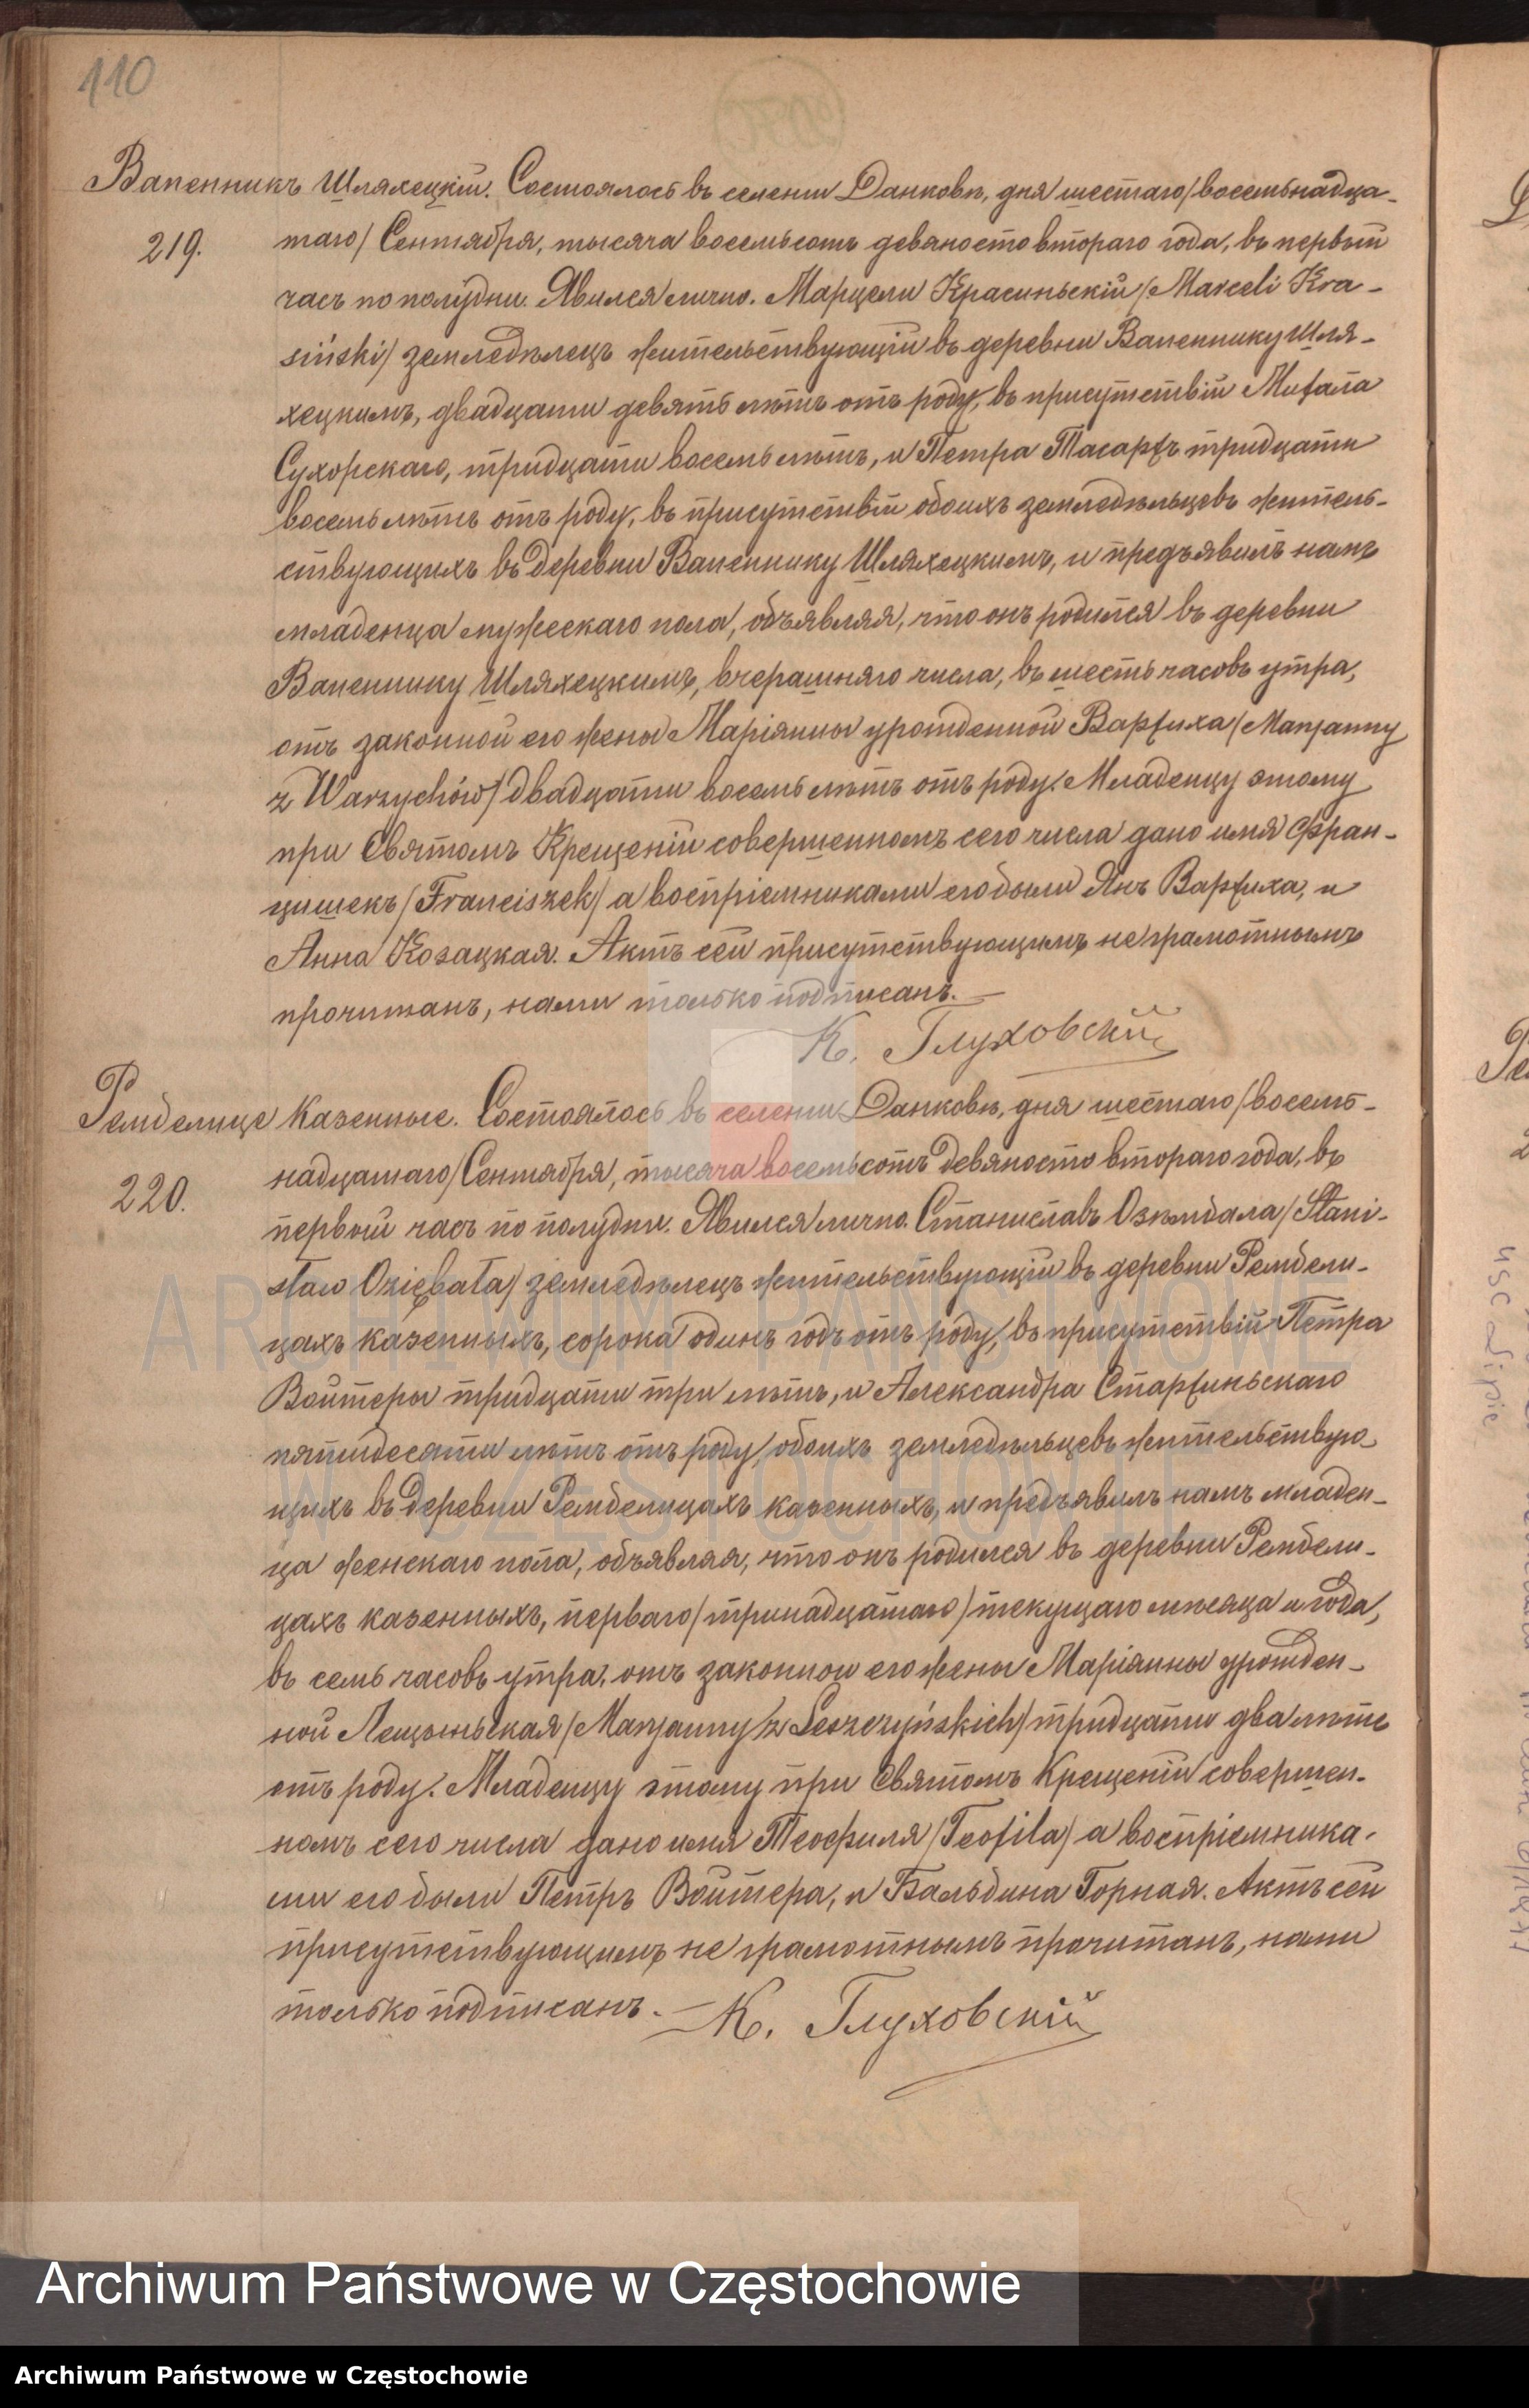 110
Вапенникъ Шляхецкій. Состоялось въ селеніи Данковѣ, дня шестаго /восемьнадца-
219. таго/ Сентября, тысяча восемьсотъ девяносто втораго года, въ первый
часъ по полудни. Явился лично. Марцели Красиньскій /Marceli Kra-
siński/ земледѣлецъ жительствующій въ деревни Вапеннику Шля-
хецкимъ, двадцати девять лѣтъ отъ роду, въ присутствій Михала
Сухорскаго, тридцати восемь лѣтъ, и Петра Тасаржъ тридцати
восемь лѣтъ отъ роду, въ присутствіи обоихъ земледѣльцевъ житель-
ствующихъ въ деревни Вапеннику Шляхецкимъ, и предъявилъ намъ
младенца мужескаго пола, объявляя, что онъ родился въ деревни
Вапеннику Шляхецкимъ, вчерашняго числа, въ шесть часовъ утра,
отъ законной его жены Маріянны урожденной Варжиха /Maryanny
z Warzychów/ двадцати восемь лѣтъ отъ роду. Младенцу этому
при Святомъ Крещеніи совершенномъ сего числа дано имя Фран-
цишекъ /Franciszek/ а воспріемниками его были Янъ Варжиха, и
Анна Козацкая. Актъ сей присутствующимъ не грамотнымъ
прочитанъ, нами только подписанъ. —
К. Глуховскій
Рембелице Казенные. Состоялось въ селеніи Данковѣ, дня шестаго /восемь-
220. надцатаго/ Сентября, тысяча восемьсотъ девяносто втораго года, въ
первый часъ по полудни. Явился лично. Станиславъ Озѣмбала /Stani-
sław Oziębała/ земледѣлецъ жительствующій въ деревни Рембели-
цахъ казенныхъ, сорока одинъ годъ отъ роду, въ присутствій Петра
Войтеры тридцати три лѣтъ, и Александра Старжиньскаго
пятидесяти лѣтъ отъ роду, обоихъ земледѣльцевъ жительствую-
щихъ въ деревни Рембелицахъ казенныхъ, и предъявилъ намъ младен-
ца женскаго пола, объявляя, что онъ родился въ деревни Рембели-
цахъ казенныхъ, перваго /тринадцатаго/ текущаго мѣсяца и года,
въ семь часовъ утра, отъ законной его жены Маріянны урожден-
ной Лещыньская /Maryanny z Leszczyńskich/ тридцати два лѣтъ
отъ роду. Младенцу этому при Святомъ Крещеніи совершен-
номъ сего числа дано имя Теофиля /Teofila/ а воспріемника-
ми его были Петръ Войтера, и Бальбина Горная. Актъ сей
присутствующимъ не грамотнымъ прочитанъ, нами
только подписанъ. — К. Глуховскій
ARCHIWUM PAŃSTWOWE
W CZĘSTOCHOWIE
Archiwum Państwowe w Częstochowie
Archiwum Państwowe w Częstochowie